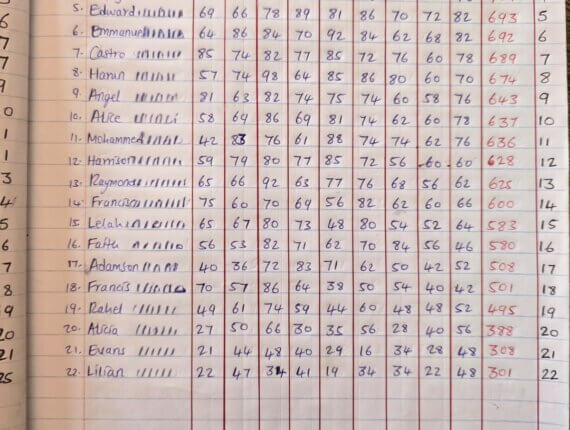 5. Edward 69 66 78 89 81 86 70 72 82 693 5
6. Emmanuel 64 86 84 70 92 84 62 68 82 692 6
7. Castro 85 74 82 77 85 72 76 60 78 689 7
8. Hanan 57 74 98 64 85 86 80 60 70 674 8
9. Angel 81 63 82 74 75 74 60 58 76 643 9
10. Alice 58 64 86 69 81 74 62 60 78 637 10
11. Mohammed 42 83 76 61 88 74 74 62 76 636 11
12. Harrison 59 79 80 77 85 72 56 60 60 628 12
13. Raymond 65 66 92 63 77 76 68 56 62 625 13
14. Francisca 75 60 70 69 56 82 62 60 66 600 14
15. Lelah 65 67 80 73 48 80 54 52 64 583 15
16. Faith 56 53 82 71 62 70 84 56 46 580 16
17. Adamson 40 36 72 83 71 62 50 42 52 508 17
18. Francis 70 57 86 64 38 50 54 40 42 501 18
19. Rahel 49 61 74 59 44 60 48 48 52 495 19
20. Alicia 27 50 66 30 35 56 28 40 56 388 20
21. Evans 21 44 48 40 29 16 34 28 48 308 21
22. Lilian 22 47 34 41 19 34 34 22 48 301 22